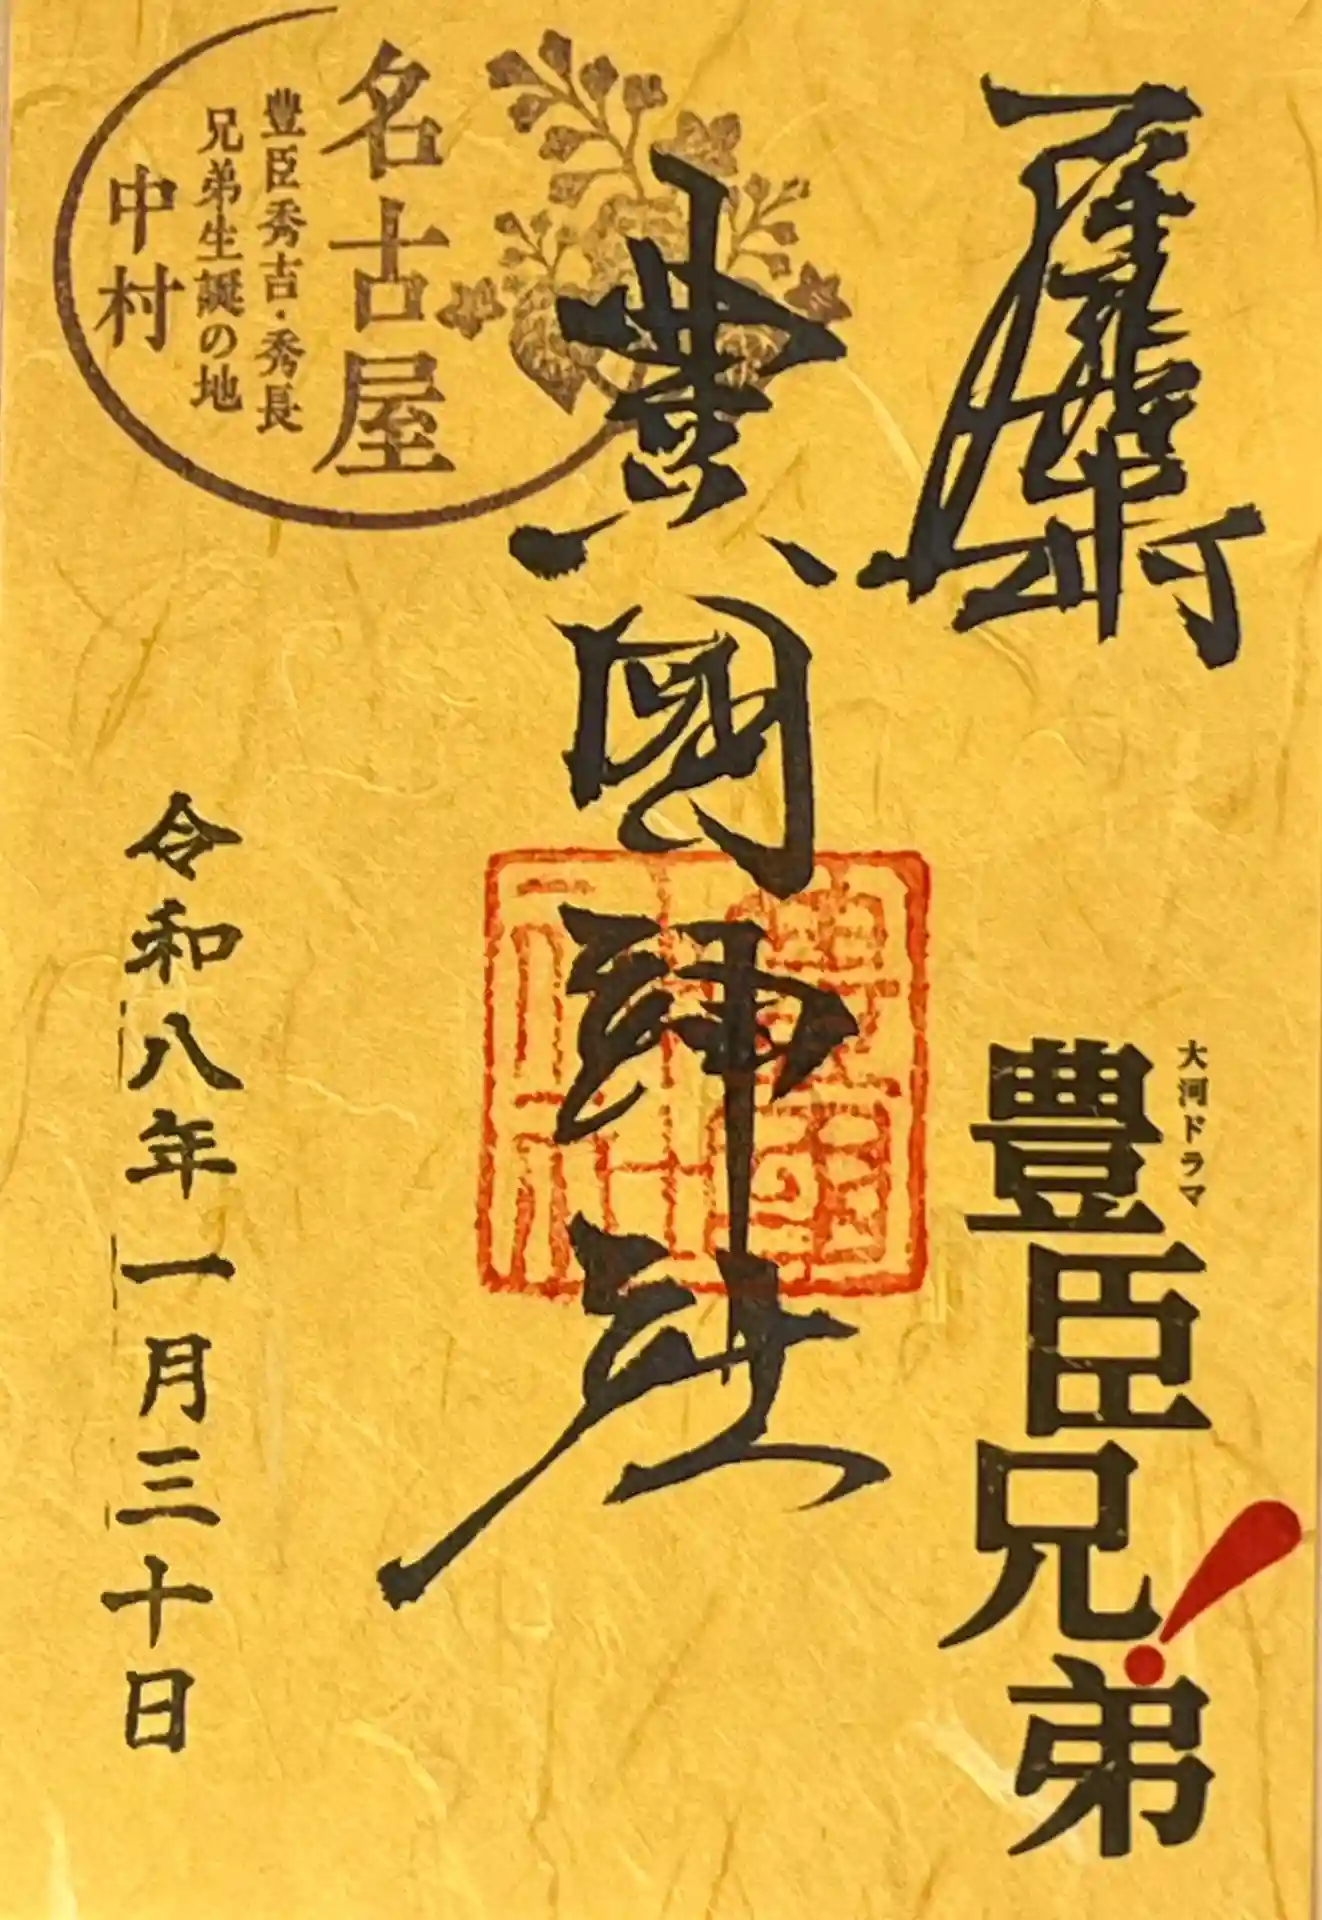 大河ドラマ
豊臣兄弟!
豊國神社
名古屋
豊臣秀吉・秀長
兄弟生誕の地
中村
令和八年一月三十日